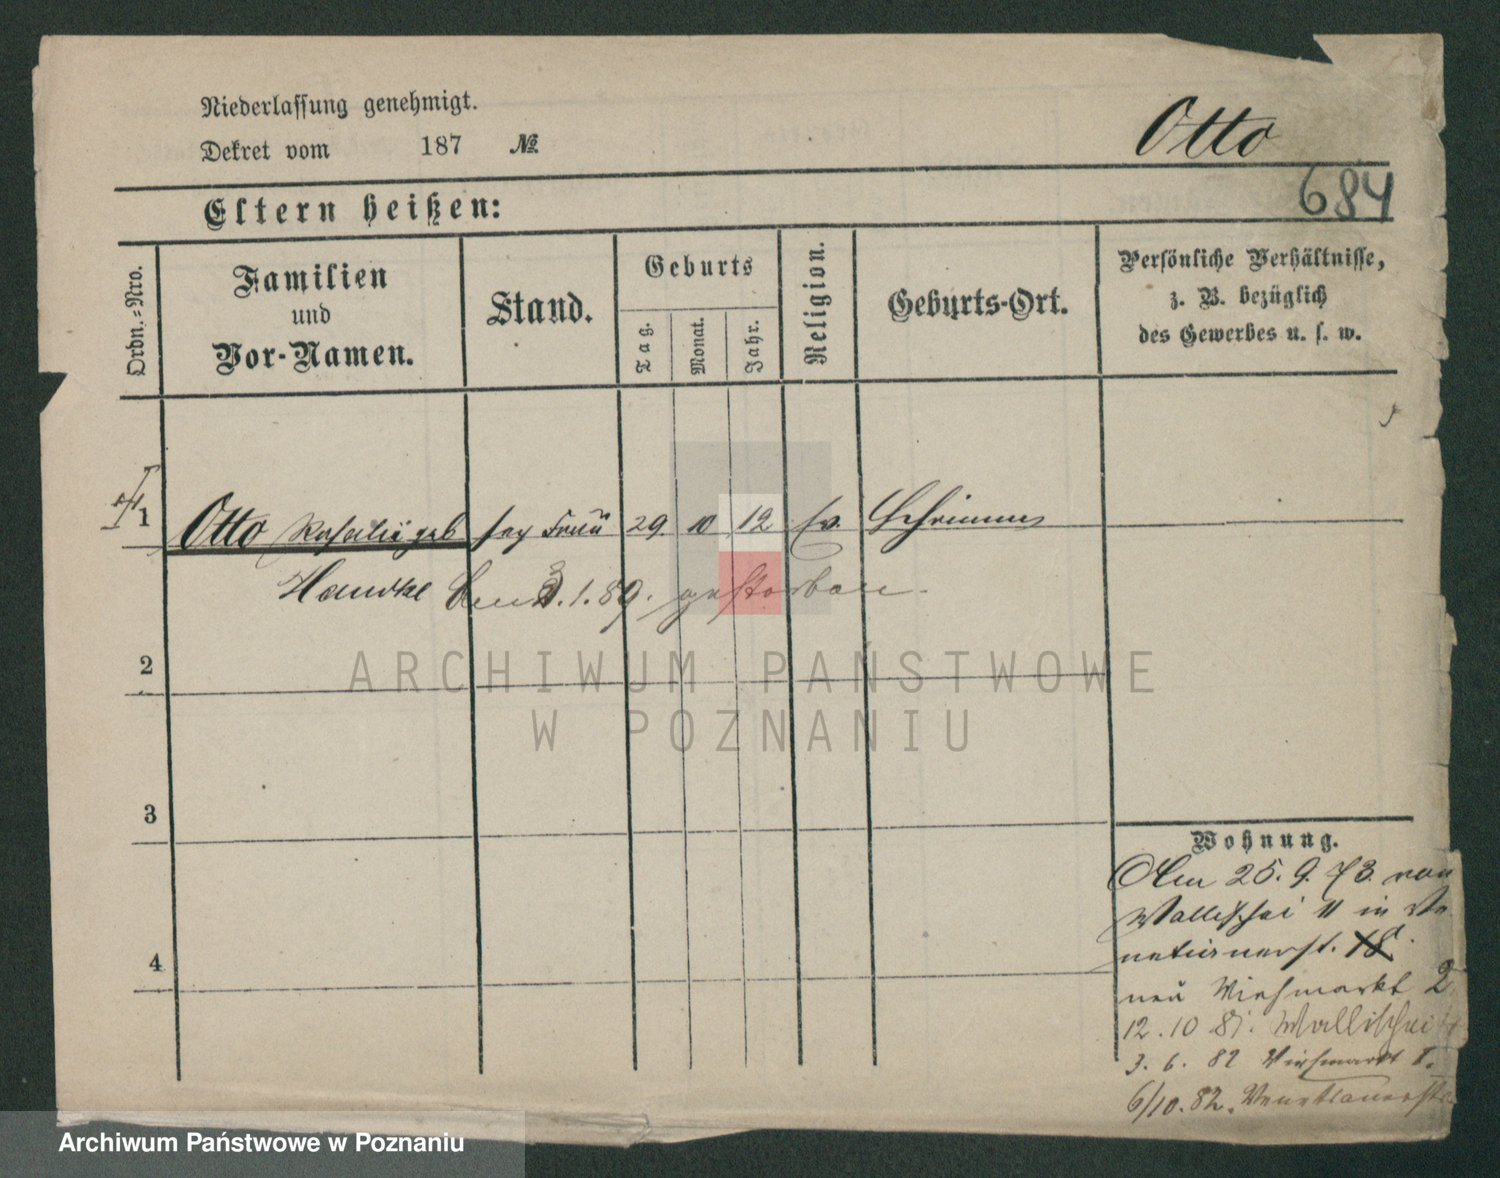 Niederlassung genehmigt.
Dekret vom 187 №
Otto
684
Eltern heißen:
Ordn.-Nro.
Familien
und
Vor-Namen.
Stand.
Geburts
Tag.
Monat.
Jahr.
Religion.
Geburts-Ort.
Persönliche Verhältnisse,
z. B. bezüglich
des Gewerbes u. s. w.
1 Otto Rosalie geb Frau 29. 10 12 ev. Schrimm
Handke 3.1.89. gestorben.
2
3
4
Wohnung.
Am 25. 9. 73. von
Wallischei 11 in Ve
netianerst. 18
neu Viehmarkt 2
12.10.81. Wallischei
3. 6. 82 Viehmarkt
6/10.82. Venetianerstr
ARCHIWUM PAŃSTWOWE
W POZNANIU
Archiwum Państwowe w Poznaniu